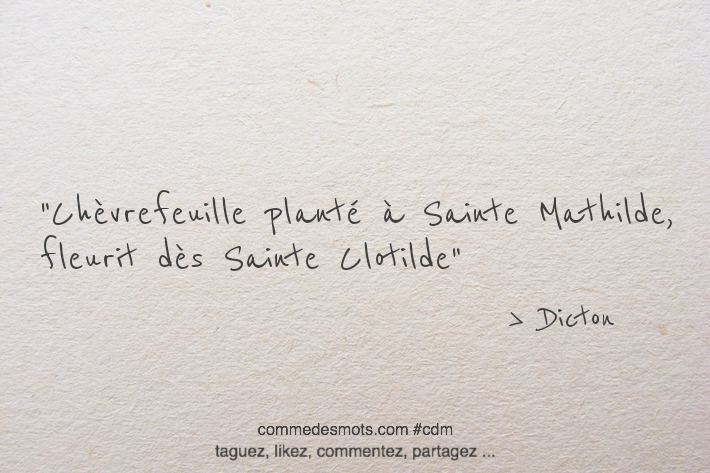 "Chèvrefeuille planté à Sainte Mathilde,
fleurit dès Sainte Clotilde"
> Dicton
commedesmots.com #cdm
taguez, likez, commentez, partagez ...